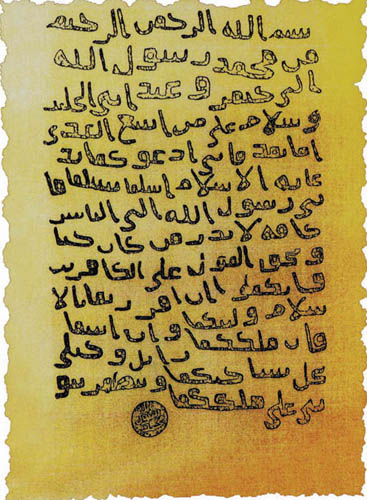 بسم الله الرحمن الرحيم
من محمد رسول الله
الى جيفر و عبد ابني الجلند
و سلام على من اتبع الهدى
اما بعد فاني ادعوكما بد
عايه الاسلام اسلما تسلما فا
ني رسول الله الى الناس
كافه لانذر من كان حيا
و يحق القول على الكافرين
فانكما ان اقررتما بالا
سلام وليتكما وان ابيتما
فان ملككما زايل وخيلي
تحل بساحتكما وتظهر نبو
تي على ملككما